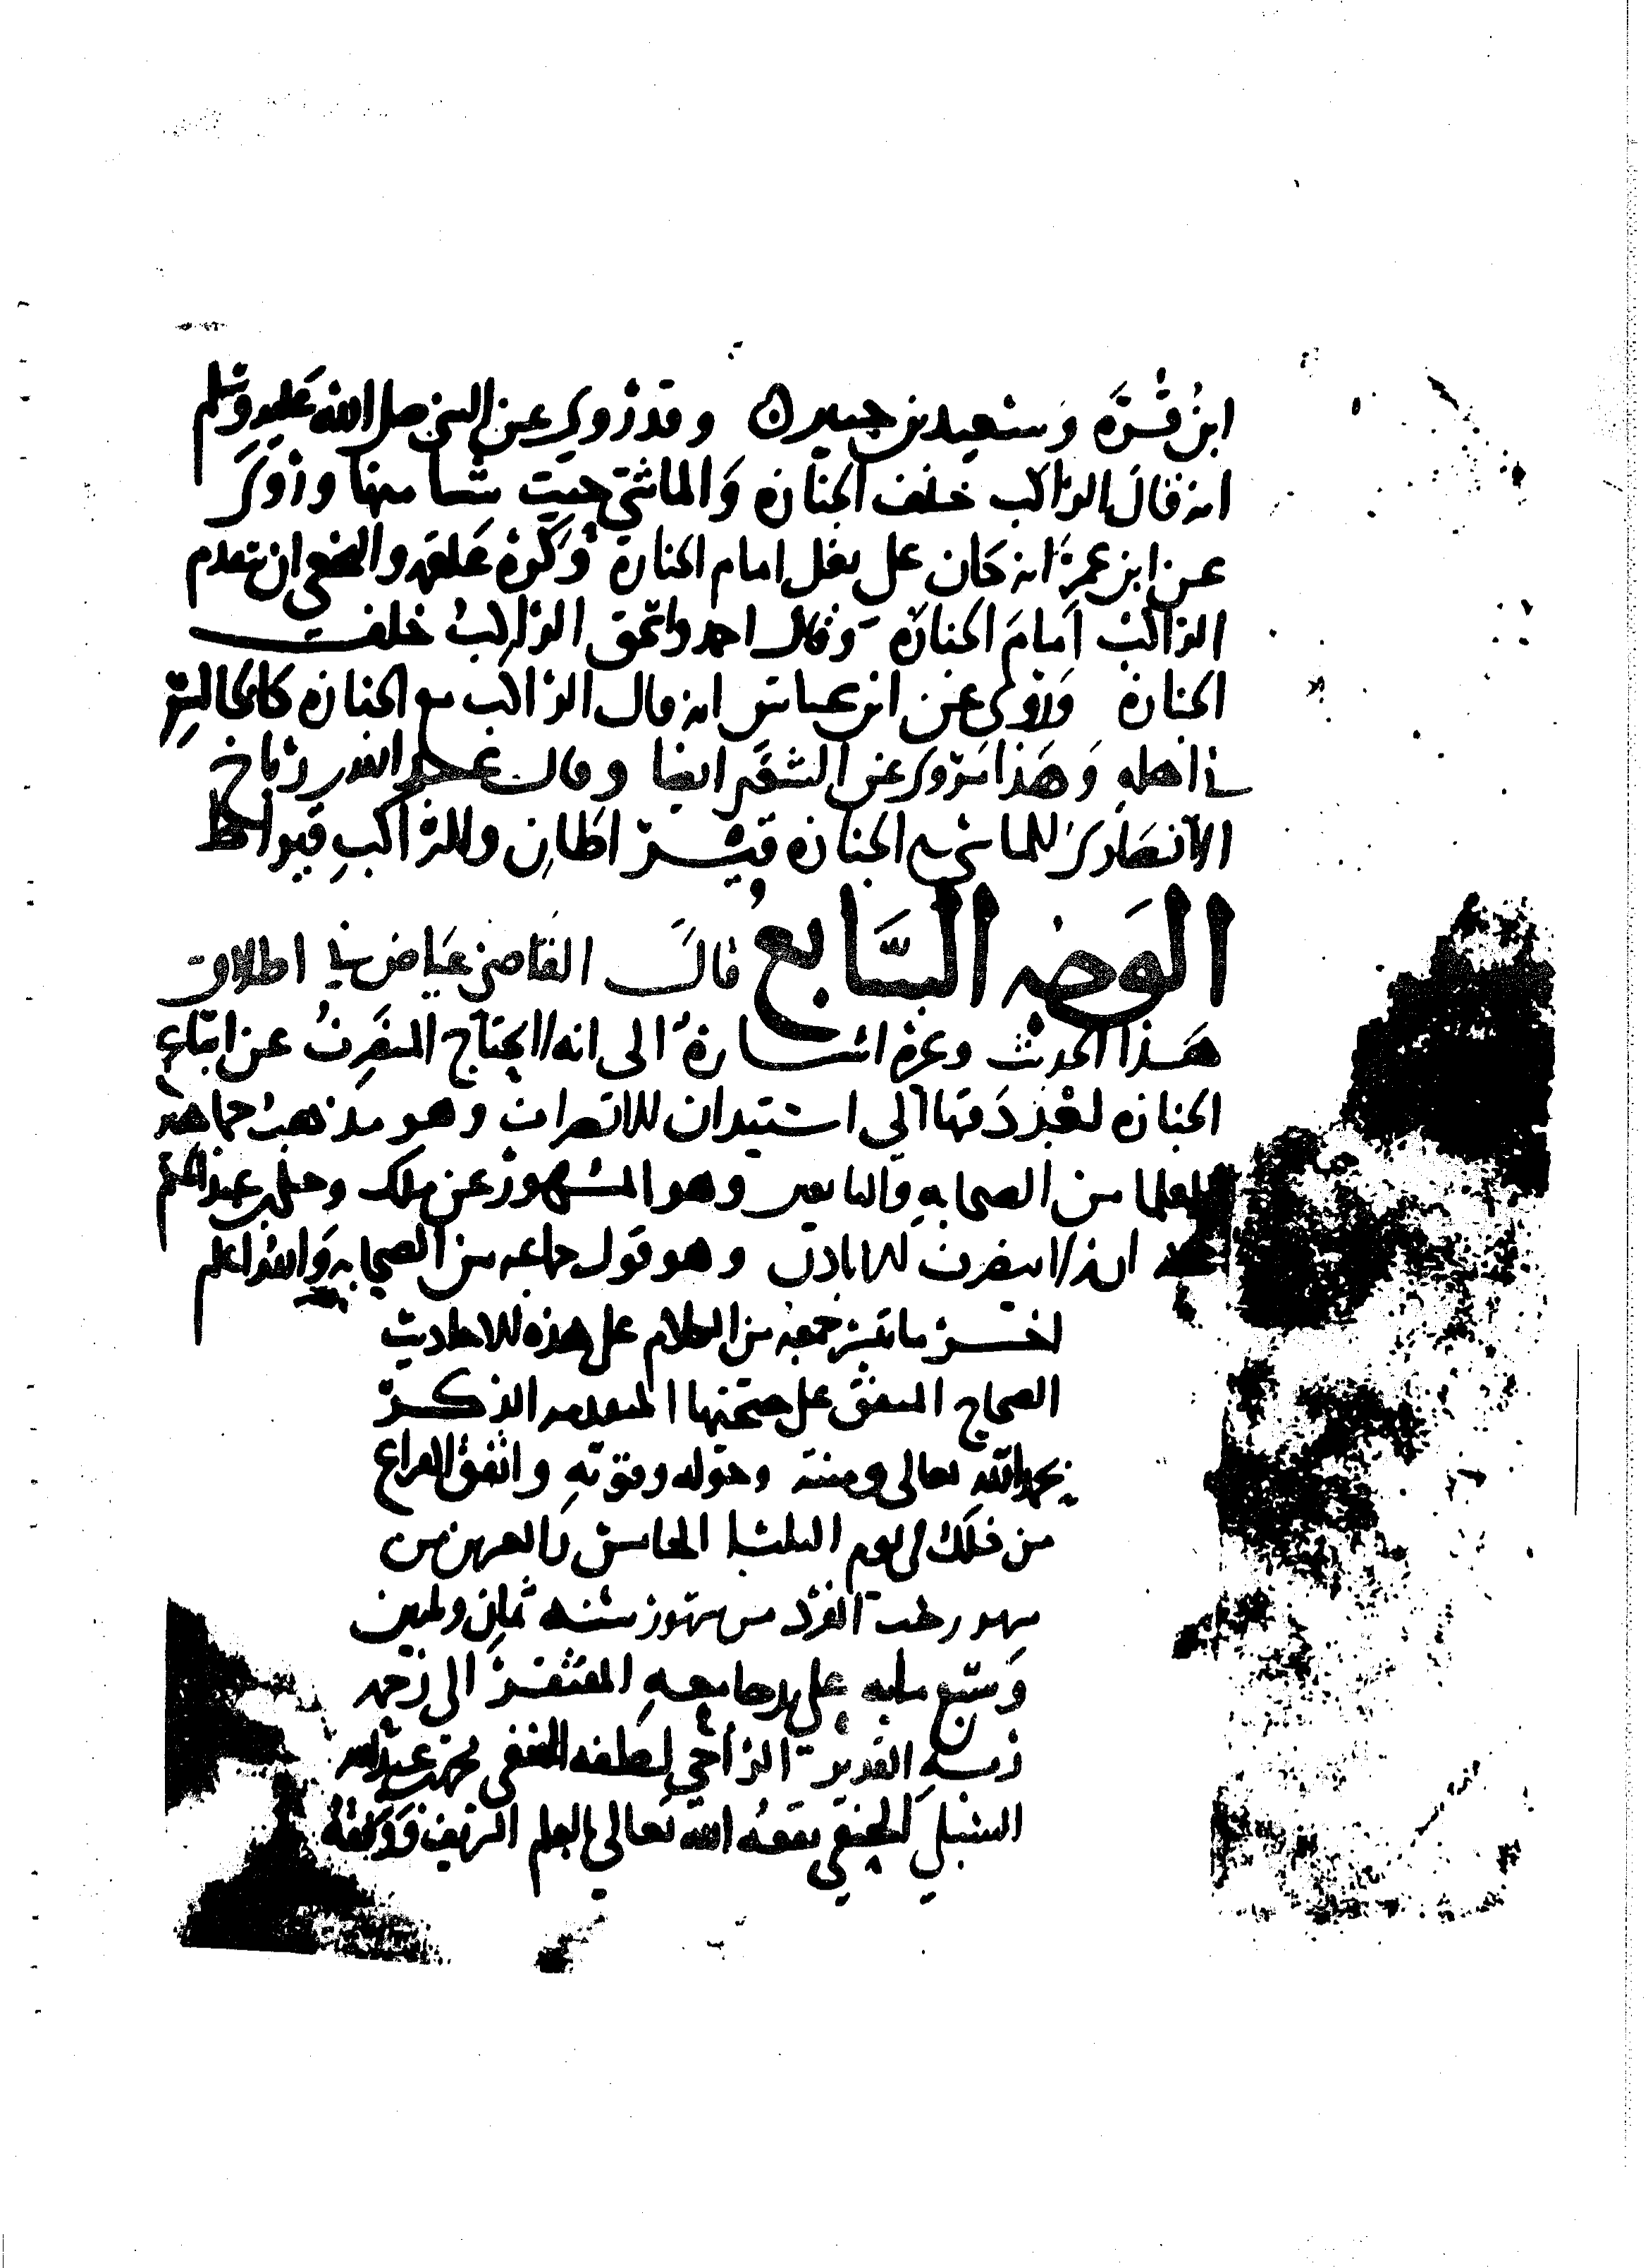 ابن قرة وسعيد بن جبير وقد روي عن النبي صلى الله عليه وسلم
انه قال الراكب خلف الجنازة والماشي حيث شا منها وروي
عن ابن عمر انه كان على بغل امام الجنازة وكره علقمه والنخعي ان يتقدم
الراكب امام الجنازة وقال احمد واسحق الراكب خلف
الجنازة وروي عن ابن عباس انه قال الراكب مع الجنازه كالجالس
في اهله وهذا مروي عن الشعبي ايضا وقال عبد الله بن رباح
الانصاري للماشي مع الجنازه قيراطان وللراكب قيراط
الوجه السابع قال القاضي عياض في اطلاق
هذا الحديث وغيره اشارة الى انه لا يحتاج المنصرف عن اتباع
الجنازه بعد دفنها الى استيذان للانصراف وهو مذهب جماهير
العلما من الصحابه والتابعين وهو المشهور عن ملك وحكى ابن عبد الحكم
عنه انه لا ينصرف الا باذن وهو قول جماعه من الصحابه والله اعلم
اخر ما تيسر جمعه من الكلام على هذه الاحاديث
الصحاح المتفق على صحتها المتقدمه الذكر
بحمد الله تعالى ومنه وحوله وقوته واتفق الفراغ
من ذلك في يوم الثلثا الخامس والعشرين من
شهر رجب الفرد من شهور سنه ثمان وثلثين
وسبع مايه على يد جامعه المفتقر الى رحمة
ربه القدير الراجي لطفه الخفي محمد بن عبد الله
الشبلي الحنفي نفعه الله تعالى بالعلم الشريف ووفقه